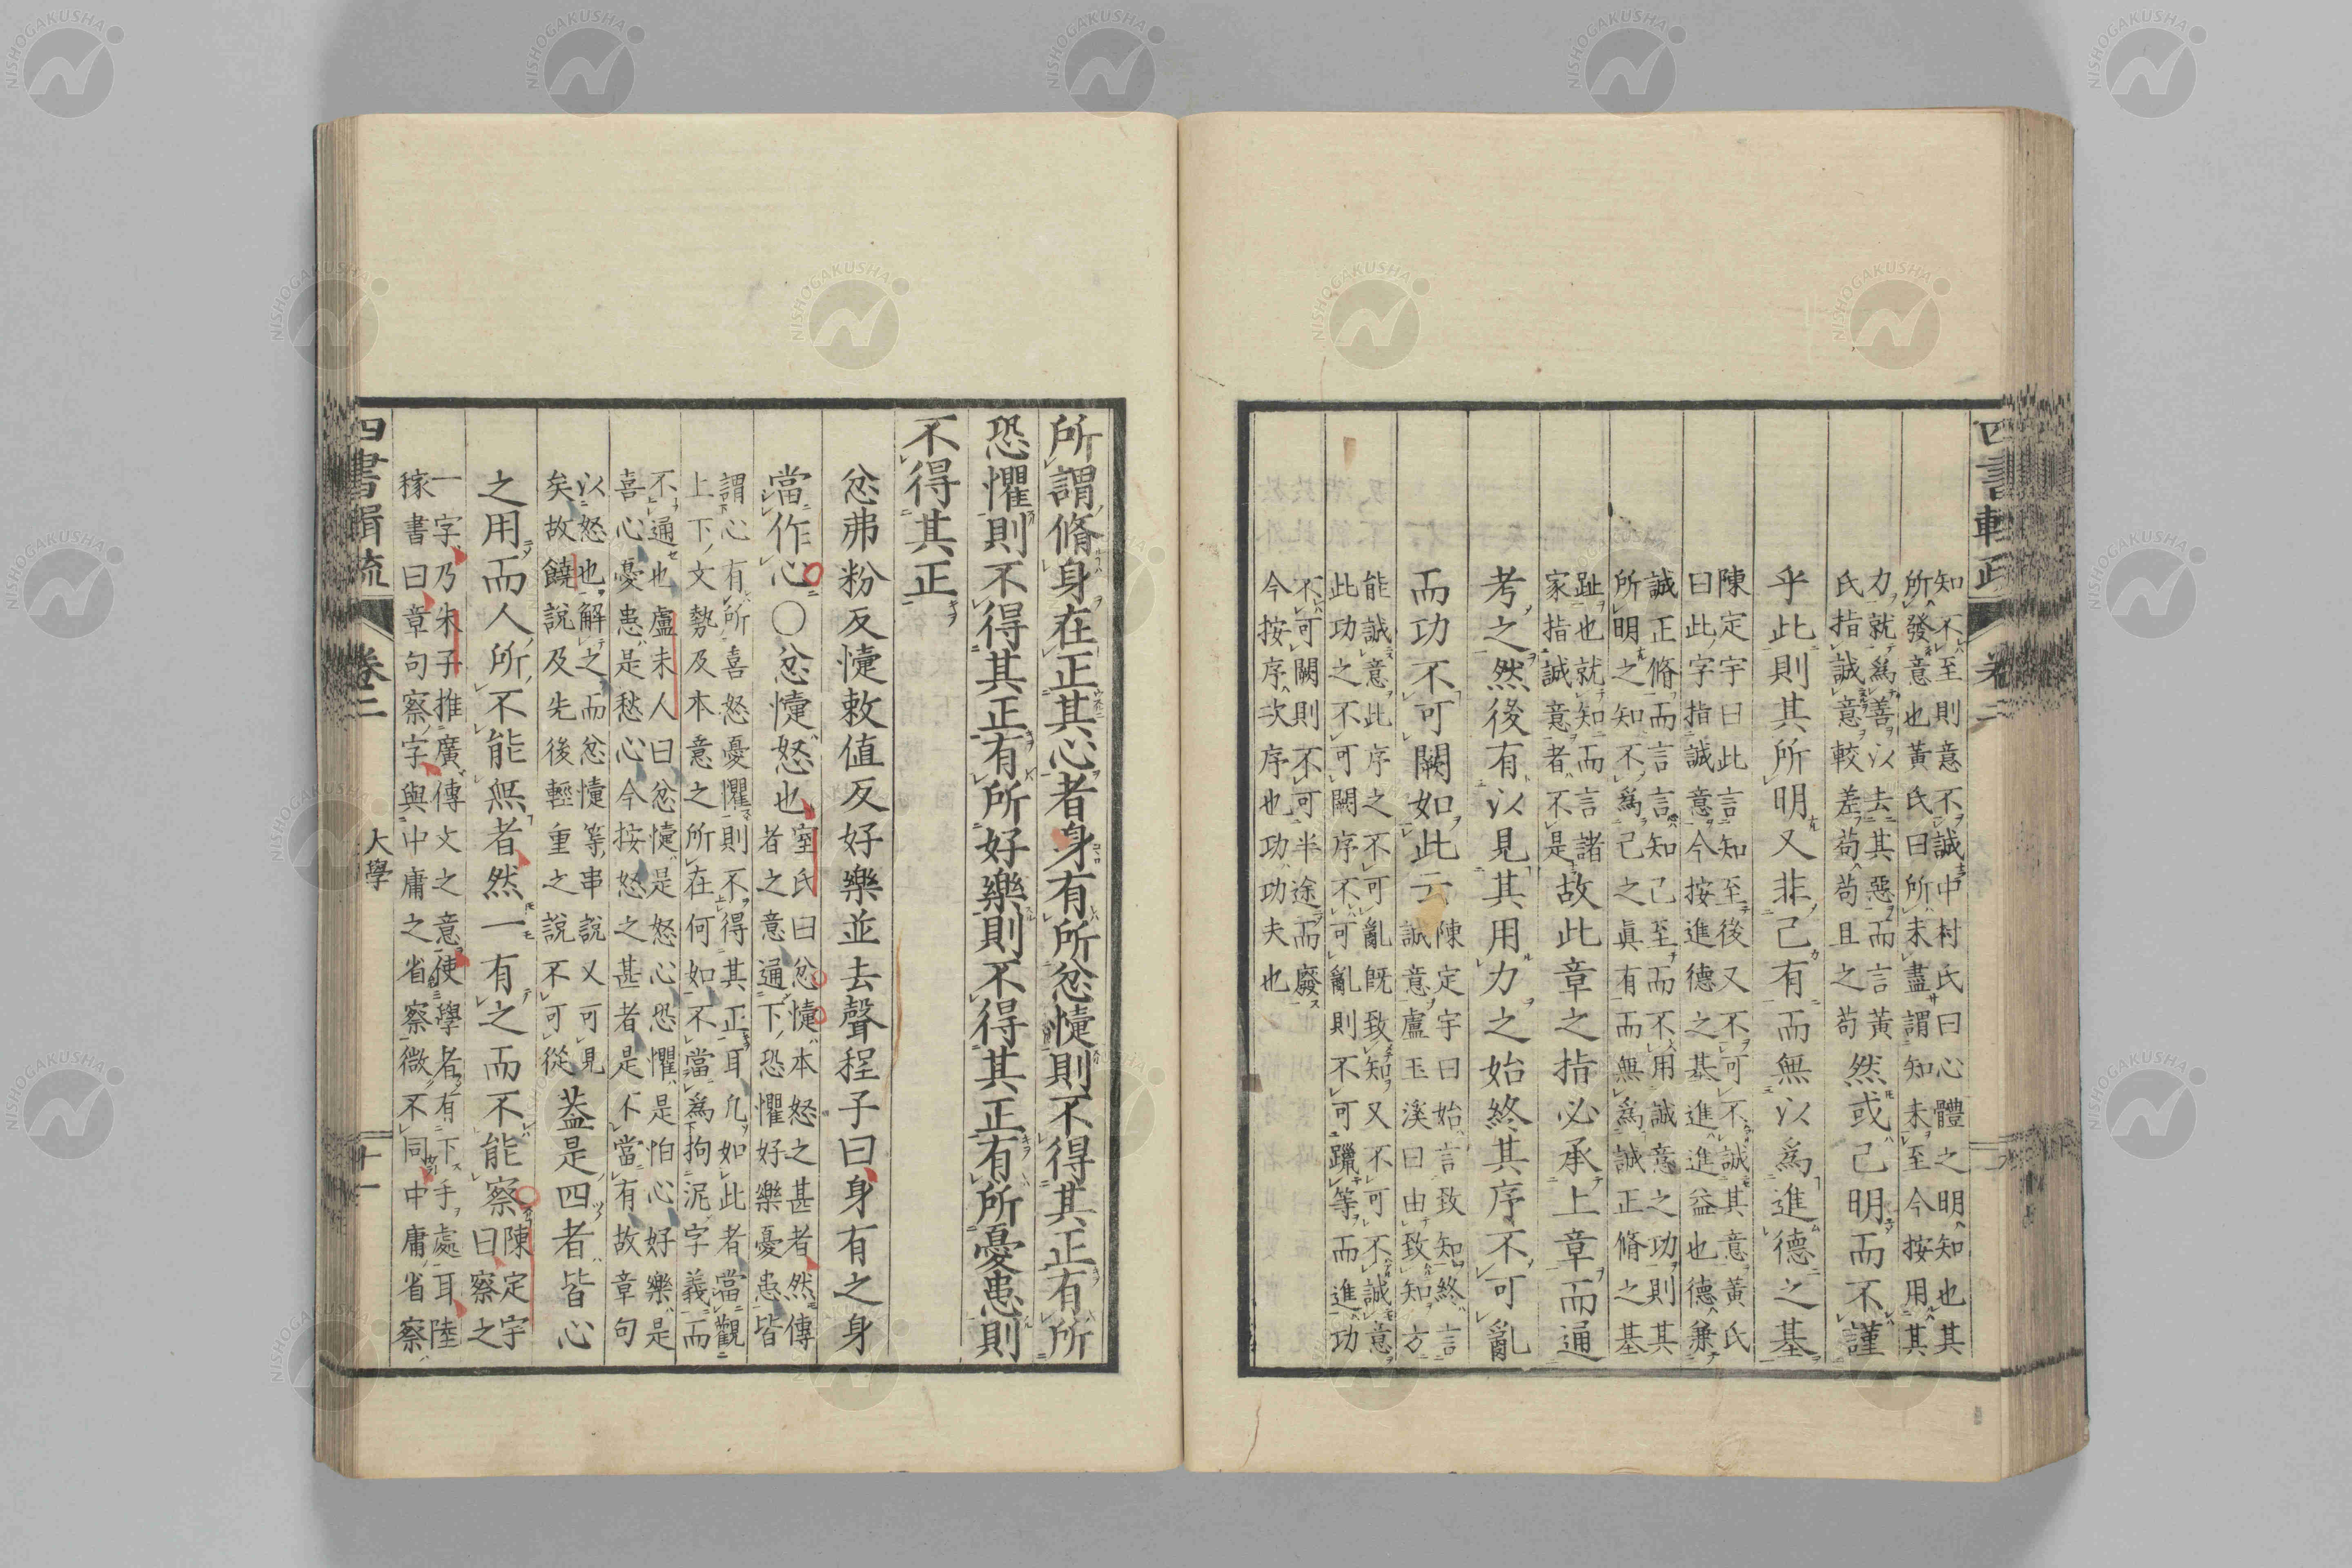 四書輯疏 卷二
知不至則意不誠中村氏曰心體之明知也其
所發意也黃氏曰所未盡謂知未至今按用其
力就爲善以去其惡而言黃
氏指誠意較差苟苟且之苟
然或己明而不謹
乎此則其所明又非己有而無以爲進德之基
陳定宇曰此言知至後又不可不誠其意黃氏
曰此字指誠意今按進德之基進進益也德兼
誠正脩而言言知己至而不用誠意之功則其
所明之知不爲己之眞有而無爲誠正脩之基
趾也就知而言諸
家指誠意者不是
故此章之指必承上章而通
考之然後有以見其用力之始終其序不可亂
而功不可闕如此云
陳定宇曰始言致知終言
誠意盧玉溪曰由致知方
能誠意此序之不可亂既致知又不可不誠意
此功之不可闕序不可亂則不可躐等而進功
不可闕則不可半途而廢
今按序次序也功功夫也
所謂脩身在正其心者身有所忿懥則不得其正有所
恐懼則不得其正有所好樂則不得其正有所憂患則
不得其正
忿弗粉反懥敕值反好樂並去聲程子曰身有之身
當作心○忿懥怒也
室氏曰忿懥本怒之甚者然傳
者之意通下恐懼好樂憂患皆
謂心有所喜怒憂懼則不得其正耳凡如此者當觀
上下文勢及本意之所在何如不當爲拘泥字義而
不通也盧未人曰忿懥是怒心恐懼是怕心好樂是
喜心憂患是愁心今按怒之甚者是不當有故章句
以怒也解之而忿懥等串說又可見
矣故饒說及先後輕重之說不可從
葢是四者皆心
之用而人所不能無者然一有之而不能察
陳定宇
曰察之
一字乃朱子推廣傳文之意使學者有下手處耳陸
稼書曰章句察字與中庸之省察微不同中庸省察
四書輯疏 卷二 大學 十一